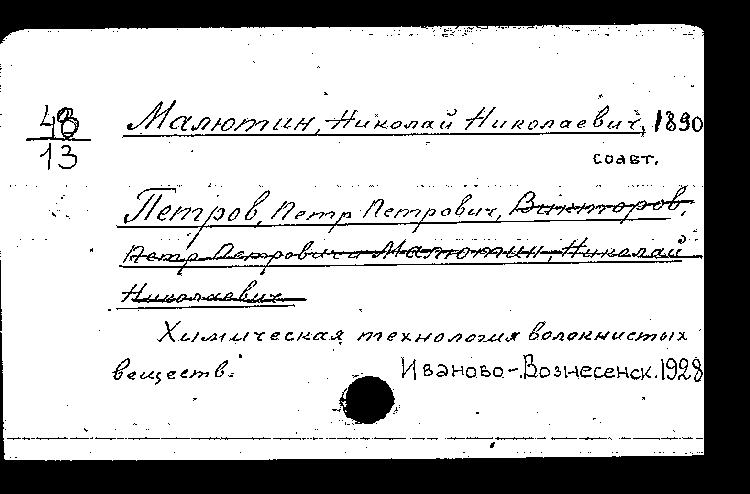 48
13
Малютин, Николай Николаевич, 1890
соавт.
Петров, Петр Петрович, Викторов,
Петр Петрович и Малютин, Николай
Николаевич
Химическая технология волокнистых
веществ.
Иваново-Вознесенск. 1928